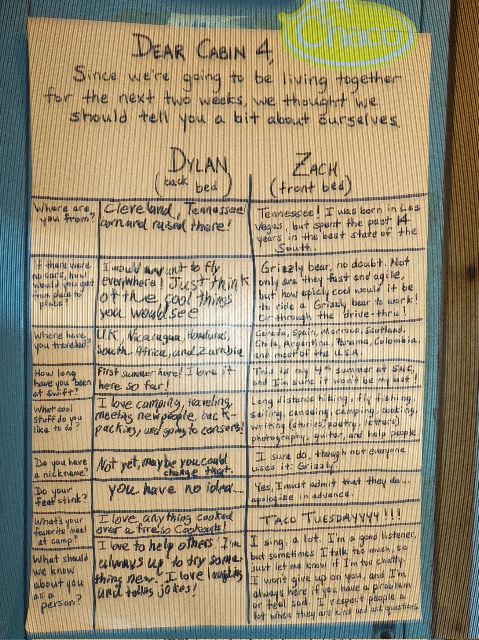 Chaco
DEAR CABIN 4,
Since we're going to be living together
for the next two weeks, we thought we
should tell you a bit about ourselves.
DYLAN
(back bed)
ZACH
(front bed)
Where are
you from?
Cleveland, Tennessee
born and raised there!
Tennessee! I was born in Las
Vegas, but spent the past 14
years in the best state of the
South.
If there were
no cars, how
would you get
from place to
place?
I would want to fly
everywhere! Just think
of the cool things
you would see
Grizzly bear, no doubt. Not
only are they fast and agile,
but how epicly cool would it be
to ride a Grizzly Bear to work!
Or through the drive-thru!
Where have
you traveled?
U.K, Nicaragua, Honduras,
South Africa, and Zambia
Canada, Spain, Morocco, Scotland,
Chile, Argentina, Panama, Colombia,
and most of the U.S.A.
How long
have you been
at swift?
First summer here! I love it
here so far!
This is my 4th summer at
and I'm sure it won't be my last!
What cool
stuff do you
like to do?
I love camping, traveling,
meeting new people, back-
packing, and going to consers!
Long distance hiking, fly fishing,
sailing, canoeing, camping, cooking,
writing (stories, poetry, letters)
photography, guitar, and help people
Do you have
a nickname?
Not yet, maybe you could
change that.
I sure do, though not everyone
uses it: Grizzly
Do your
feet stink?
you have no idea...
Yes, I must admit that they do...
apologize in advance.
What's your
favorite meal
at camp?
I love anything cooked
over a fire so Cookouts!
TACO TUESDAYYYY!!!
What should
we know
about you
as a
person?
I love to help others I'm
always up to try some
thing new! I love laughing
and telling jokes!
I sing, a lot. I'm a good listener,
but sometimes I talk too much, so
just let me know if I'm too chatty.
I won't give up on you, and I'm
always here if you have a problem
or feel sad. I respect people a
lot when they are kind and ask questions.